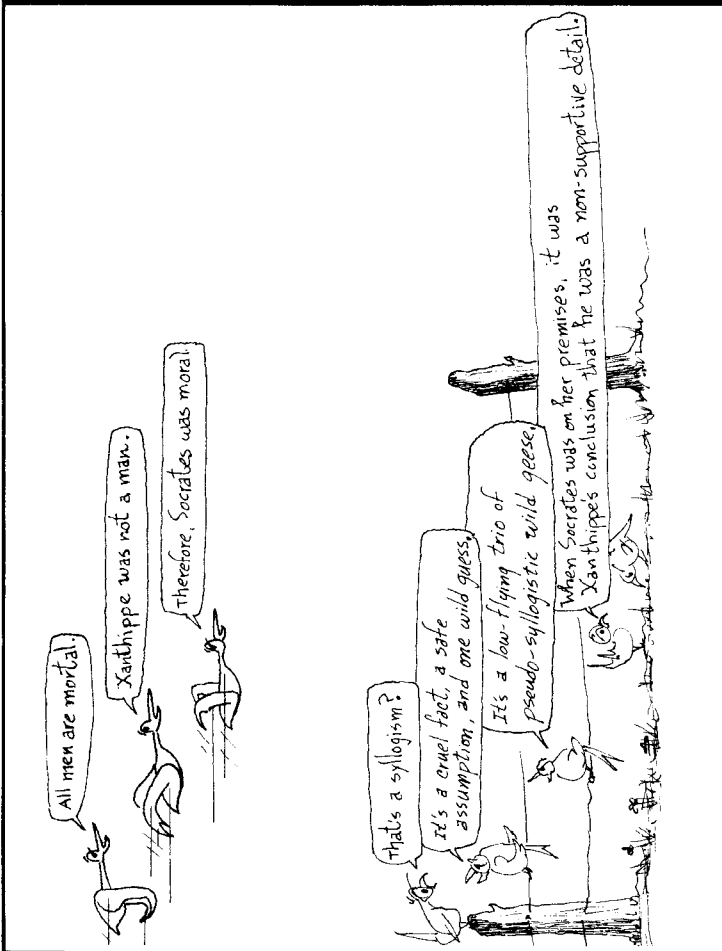 All men are mortal.
Xanthippe was not a man.
Therefore, Socrates was moral.
That's a syllogism?
It's a cruel fact, a safe
assumption, and one wild guess.
It's a low-flying trio of
pseudo-syllogistic wild geese.
When Socrates was on her premises, it was
Xanthippe's conclusion that he was a non-supportive detail.